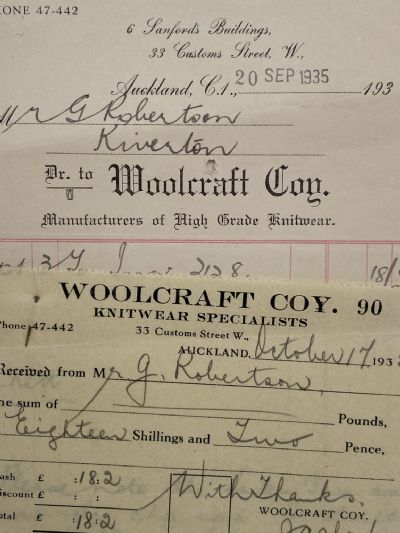 PHONE 47-442
6 Sanford's Buildings,
33 Customs Street, W.,
Auckland, C.1., 20 SEP 1935 193
Mr G Robertson
Riverton
Dr. to Woolcraft Coy.
Manufacturers of High Grade Knitwear.
2128 18/
WOOLCRAFT COY. 90
KNITWEAR SPECIALISTS
Phone 47-442 33 Customs Street W.,
AUCKLAND, October 17 193
Received from Mr G. Robertson,
the sum of Pounds,
Eighteen Shillings and Two Pence,
Cash £ : 18 : 2 With Thanks,
Discount £ : :
Total £ : 18 : 2 WOOLCRAFT COY.